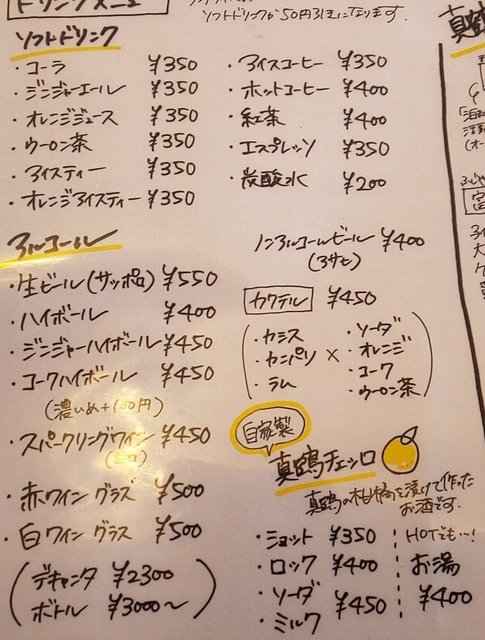 ドリンクメニュー
ソフトドリンクが50円引きになります.
ソフトドリンク
・コーラ ¥350
・ジンジャーエール ¥350
・オレンジジュース ¥350
・ウーロン茶 ¥350
・アイスティー ¥350
・オレンジアイスティー ¥350
・アイスコーヒー ¥350
・ホットコーヒー ¥400
・紅茶 ¥400
・エスプレッソ ¥350
・炭酸水 ¥200
アルコール
・生ビール(サッポロ) ¥550
・ハイボール ¥400
・ジンジャーハイボール ¥450
・コークハイボール ¥450
(濃いめ+100円)
・スパークリングワイン ¥450
(辛口)
・赤ワイン グラス ¥500
・白ワイン グラス ¥500
デキャンタ ¥2300
ボトル ¥3000〜
ノンアルコールビール ¥400
(アサヒ)
カクテル ¥450
・カシス
・カンパリ
・ラム
×
・ソーダ
・オレンジ
・コーク
・ウーロン茶
自家製
真鶴チェッロ
真鶴の柑橘を漬けて作った
お酒です.
・ショット ¥350
・ロック ¥400
・ソーダ ¥450
・ミルク
HOTでも…!
お湯
¥400
真鶴